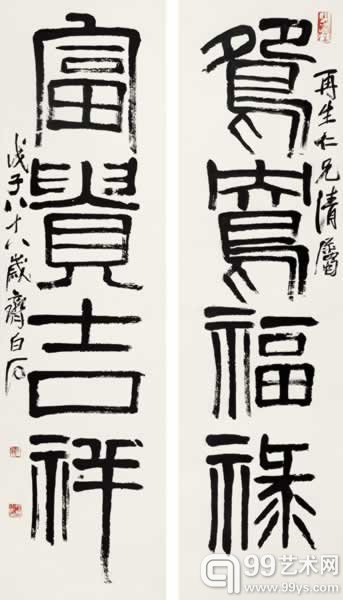 再生仁兄清屬
鴛鴦福祿
富貴吉祥
戊子八十八歲齊白石
99艺术网
www.99ys.com